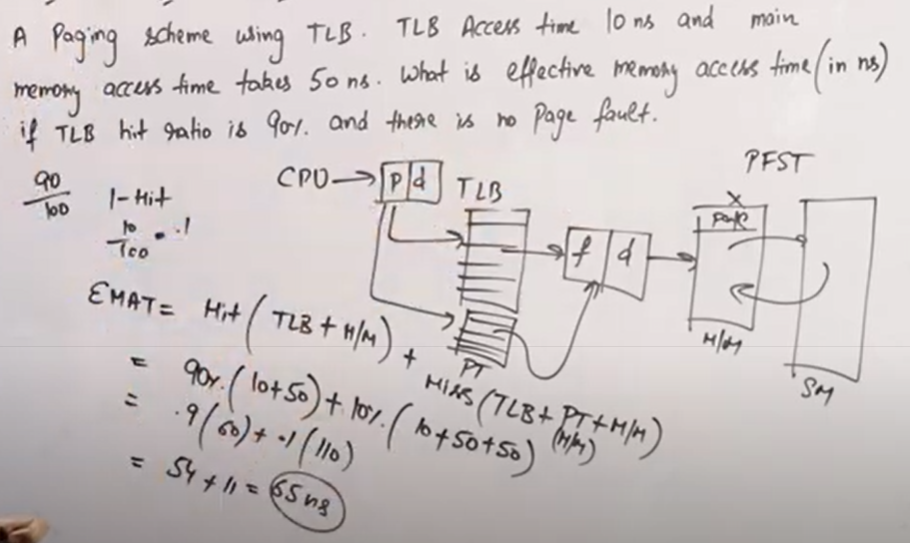 A Paging scheme using TLB. TLB Access time 10 ns and main
memory access time takes 50 ns. What is effective memory access time (in ns)
if TLB hit ratio is 90%. and there is no Page fault.
90/100
1-Hit
10/100 = .1
CPU → p d
TLB
PT
f d
PFST
X
M/M
SM
EMAT = Hit (TLB + M/M) + Miss (TLB + PT + M/M)
(M/M)
= 90%. (10+50) + 10%. (10+50+50)
= .9(60) + .1(110)
= 54 + 11 = 65 ns